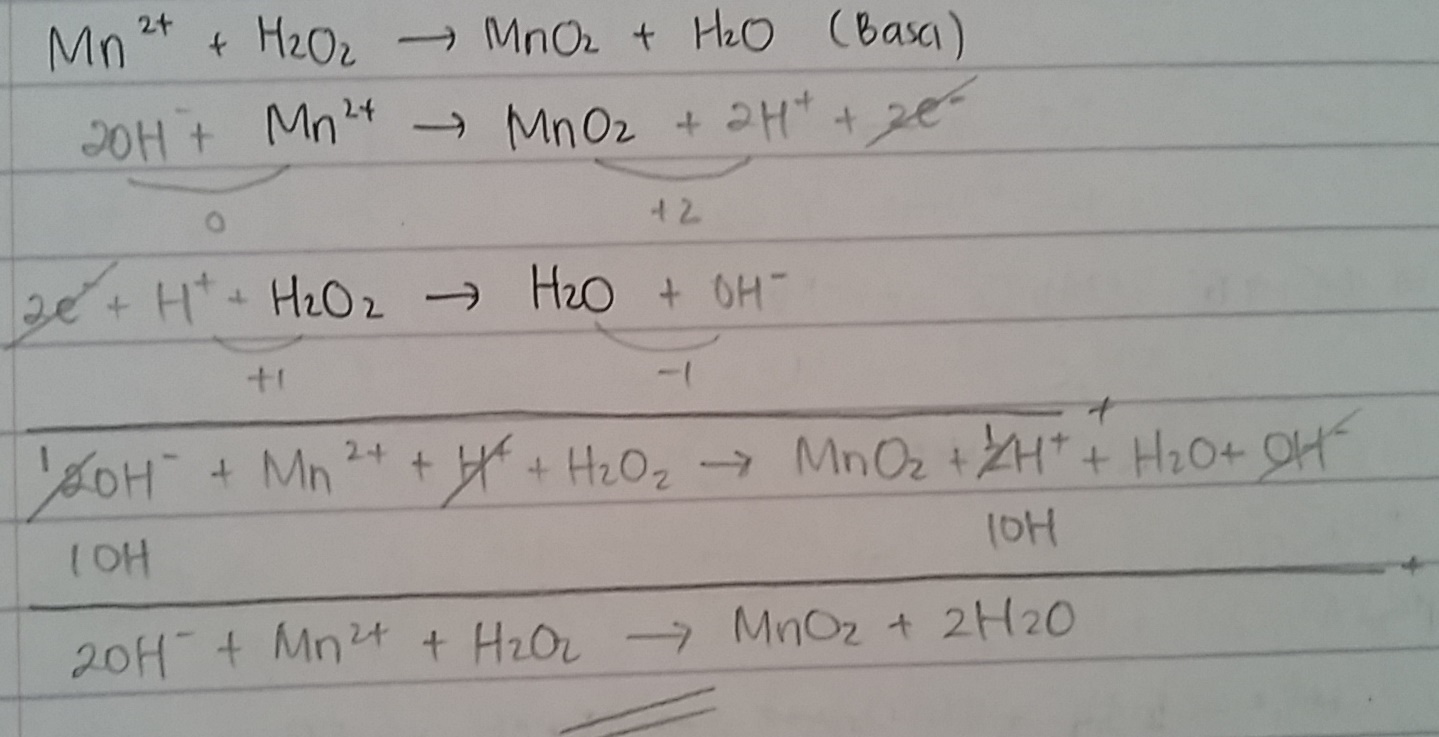 Mn²⁺ + H₂O₂ → MnO₂ + H₂O (Basa)
2OH⁻ + Mn²⁺ → MnO₂ + 2H⁺ + 2e⁻
0 +2
2e⁻ + H⁺ + H₂O₂ → H₂O + OH⁻
+1 -1
+
1 2OH⁻ + Mn²⁺ + H⁺ + H₂O₂ → MnO₂ + 1 2H⁺ + H₂O + OH⁻
1OH 1OH
+
2OH⁻ + Mn²⁺ + H₂O₂ → MnO₂ + 2H₂O